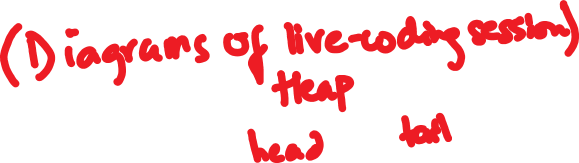 (Diagrams of live-coding session)
Heap
head tail